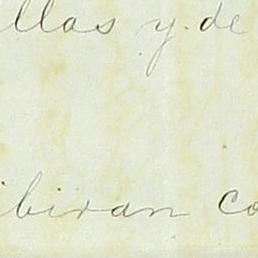 llas y de
ibiran co